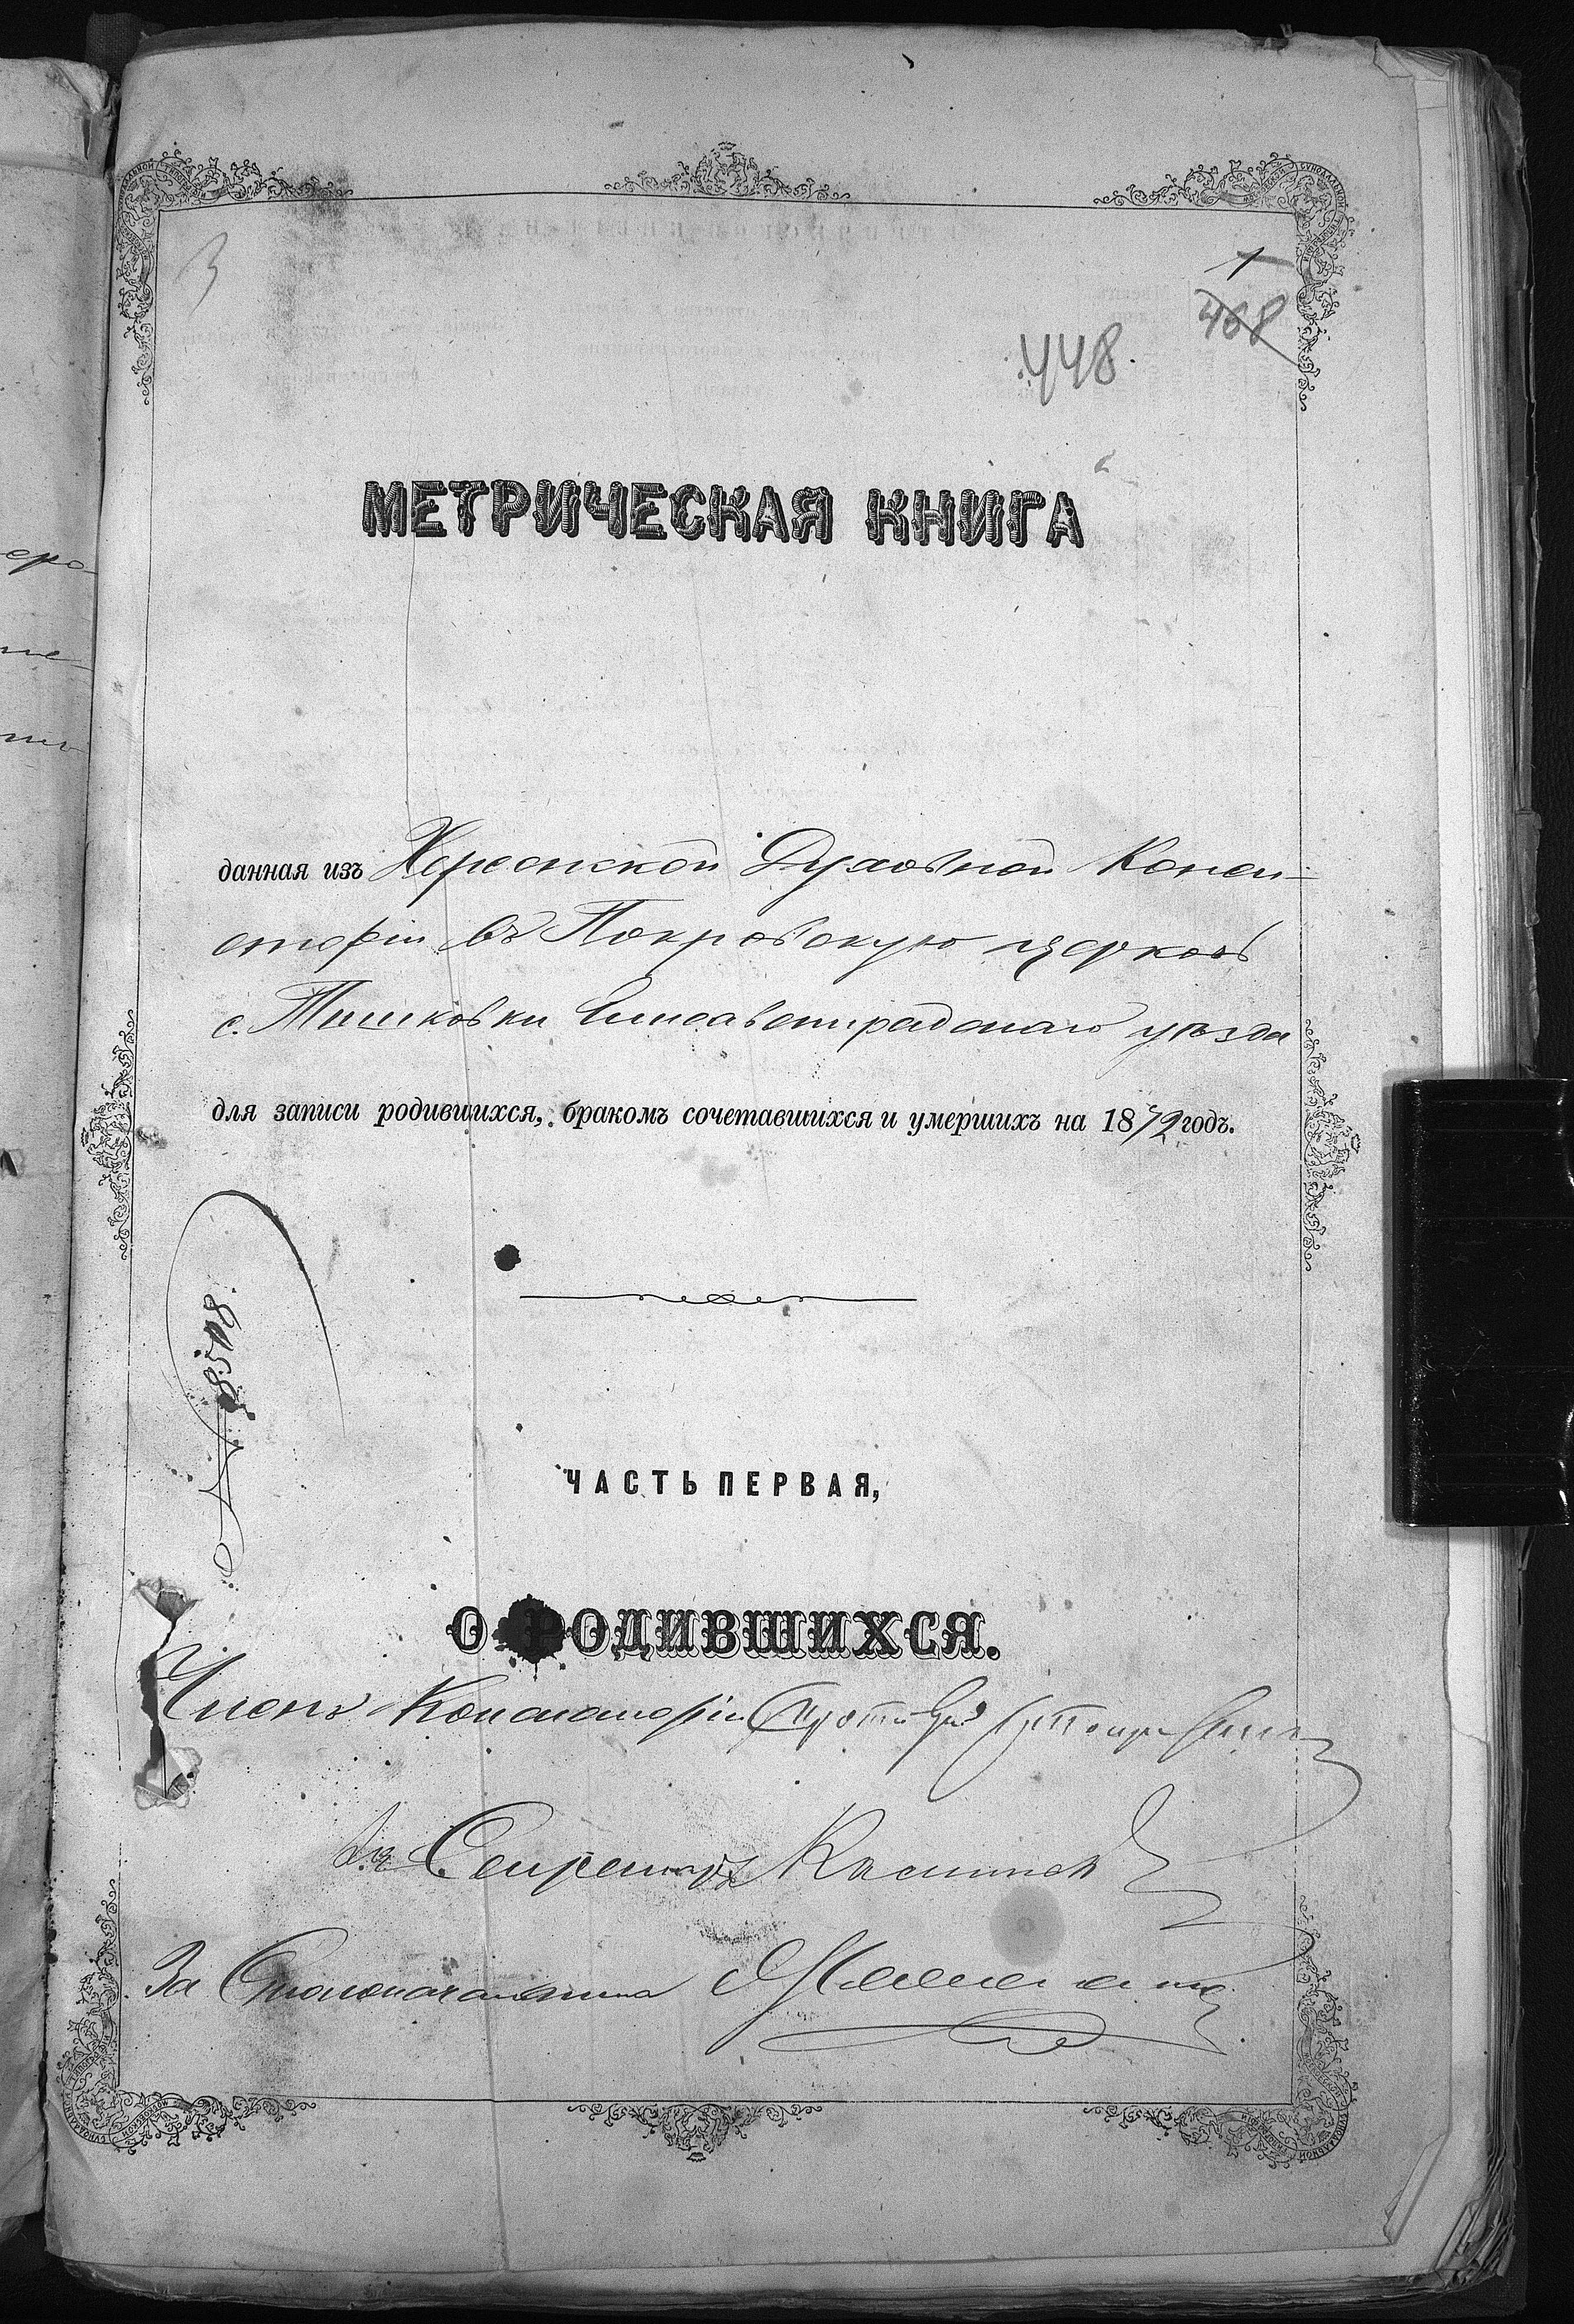 3
1
408
448.
МЕТРИЧЕСКАЯ КНИГА
данная изъ Херсонской Духовной Конси-
сторіи въ Покровскую церковь
с. Тишковки Елисаветградскаго уѣзда
для записи родившихся, бракомъ сочетавшихся и умершихъ на 1872 годъ.
№ 8518.
ЧАСТЬ ПЕРВАЯ,
О РОДИВШИХСЯ.
Членъ Консисторіи Протоіерей
Секретарь
За Столоначальника